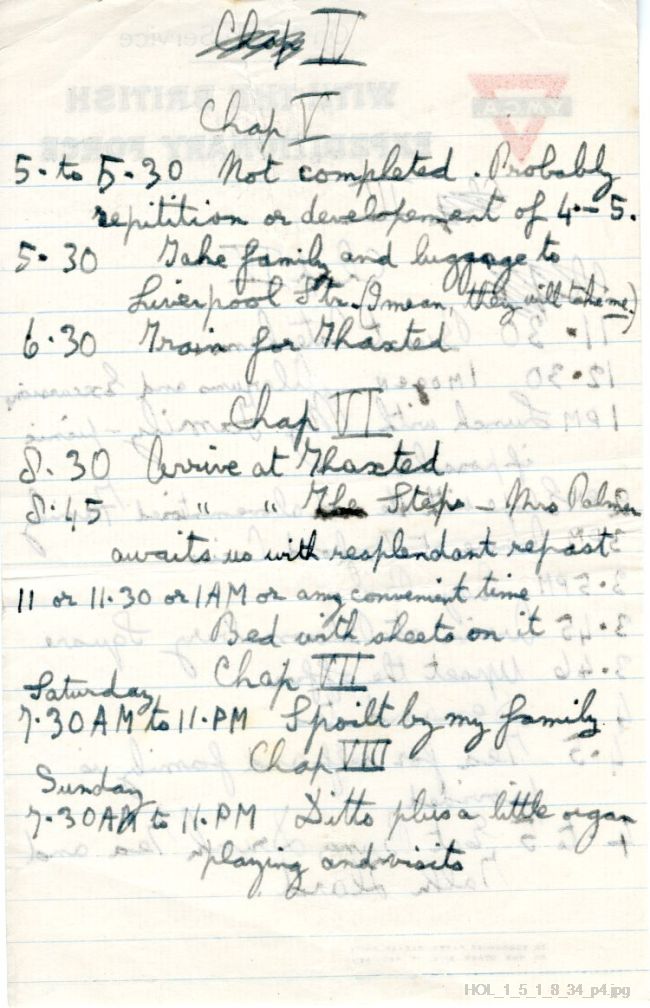 Chap IV
Chap V
5.to 5.30 Not completed. Probably
repitition or developement of 4.-5.
5.30 Take family and luggage to
Liverpool Str. (I mean, they will take me.)
6.30 Train for Thaxted
Chap VI
8.30 Arrive at Thaxted
8.45 " " The Steps - Mrs Palmer
awaits us with resplendant repast
11 or 11.30 or 1AM or any convenient time
Bed with sheets on it
Chap VII
Saturday
7.30AM to 11.PM Spoilt by my family.
Chap VIII
Sunday
7.30AM to 11.PM Ditto plus a little organ
playing and visits
HOL_1_5_1_8_34_p4.jpg